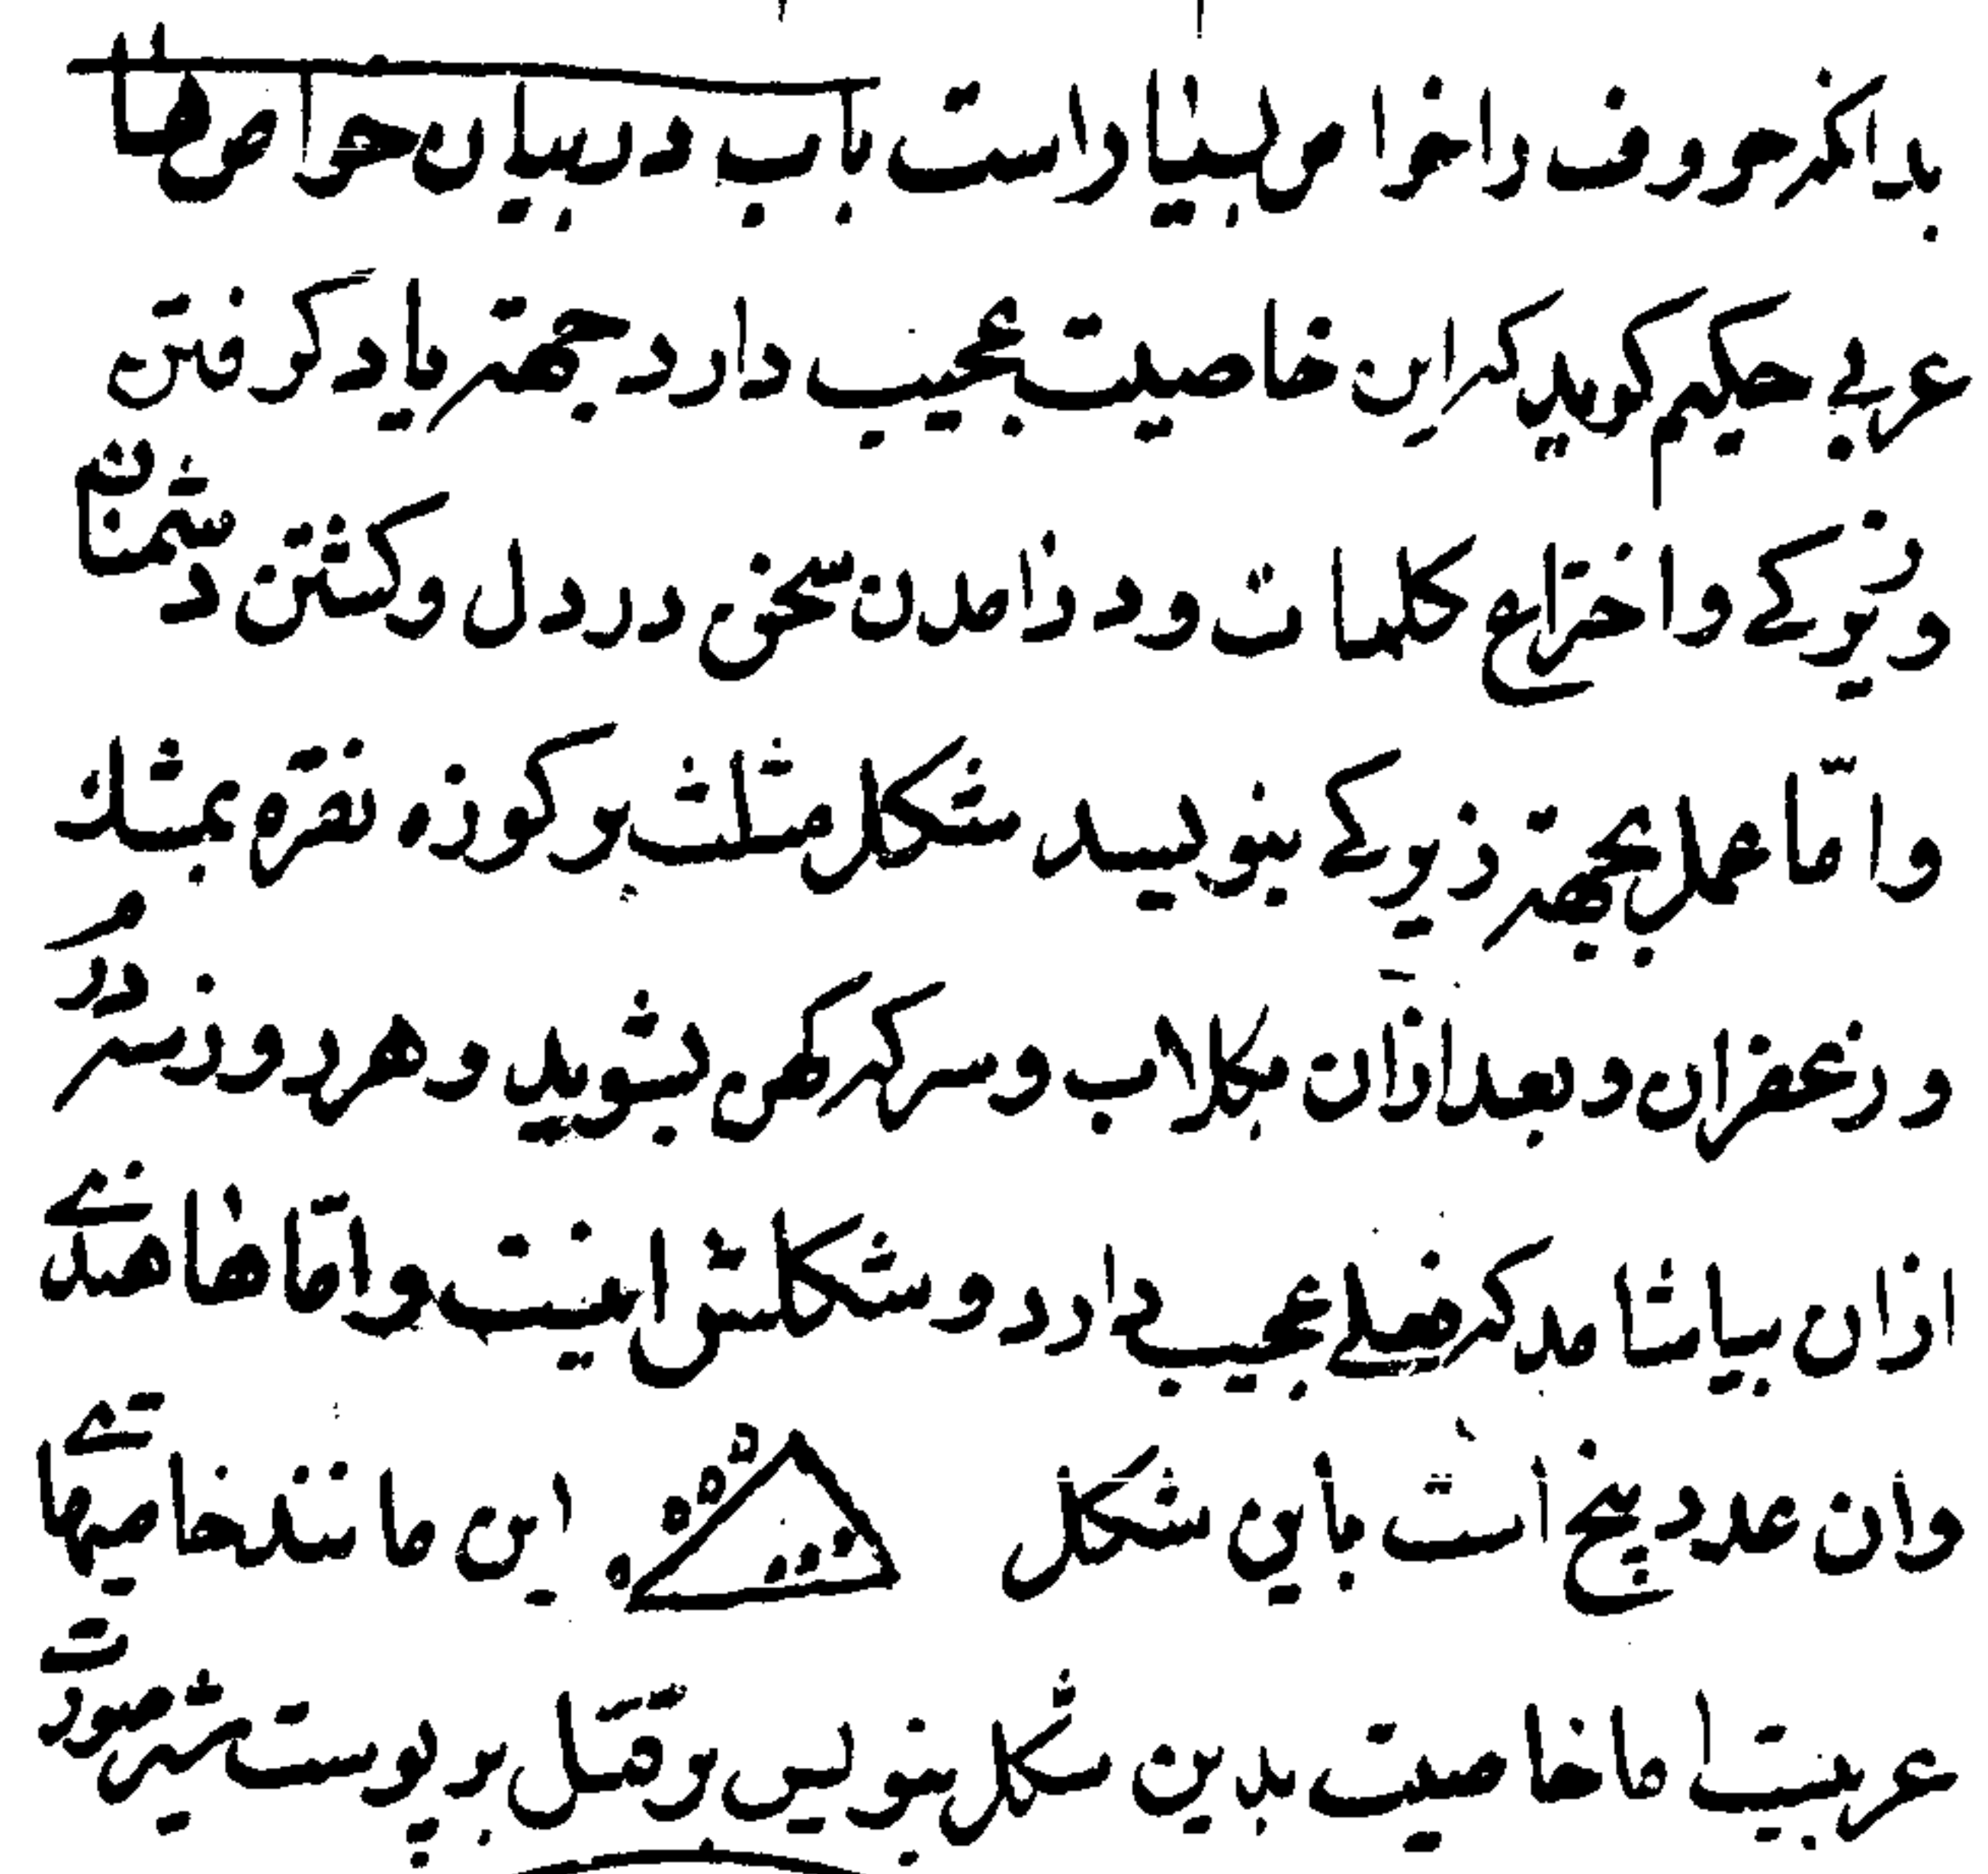 بدانکه حروف را خواص بسیار است باب در بیان خواصها
عربی حکیم گوید که این خاصیت عجیب دارد جهته یاد گرفتن
و زیرکی و اختراع کلمات و در آمدن سخن در دل و کشتن دشمنان
و امّا عمل بجهته زیرکی بنویسید شکل مثلث بر کوزه نقره بمشک
و زعفران و بعد ازان بگلاب و سرکه کهن بشوید و هر روز سه در
ازان بیاشامد که فعلی عجیب دارد و شکلش اینست و امّا خا
وان عدد پنج است باین شکل این مانند خاصیتها
عربیت اما خاصیت بدین شکل بنویس و قتل بر پوست شیر صورت